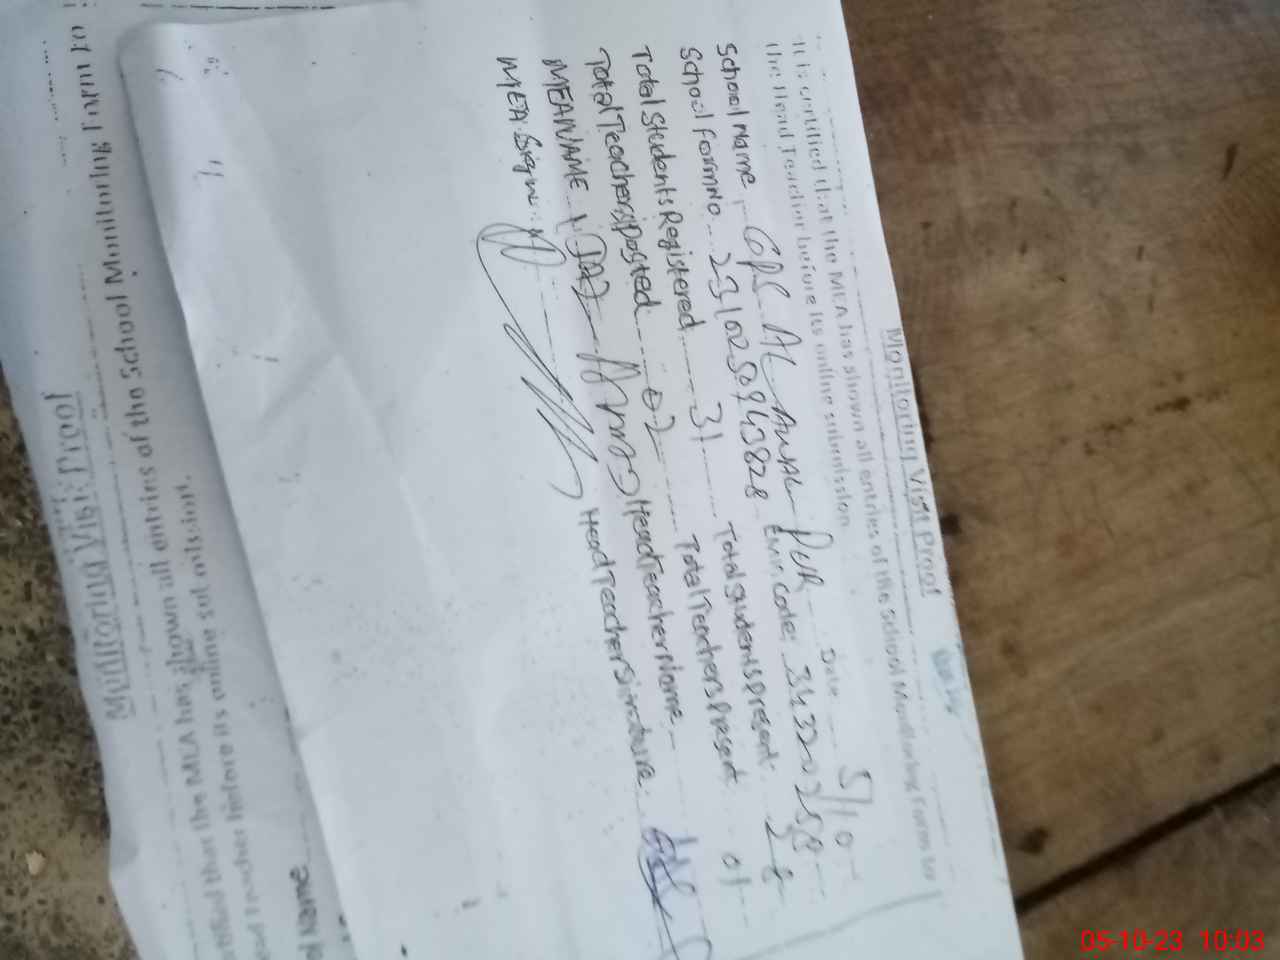 Monitoring Visit Proof
It is certified that the MEA has shown all entries of the School Monitoring Form to
the Head Teacher before its online submission
Date 5/10
School Name GPS AL AWAL PUR
School Form No 2310250943828 Emis Code: 34332 0258
Total Students Registered 31 Total Students Present: 28
Total Teachers Posted 02 Total Teachers Present 01
MEA NAME Head Teacher Name
MEA Signe Head Teacher Sinature
Monitoring Visit Proof
that the MEA has shown all entries of the School Monitoring Form to
before its online submission.
Name
05-10-23 10:03